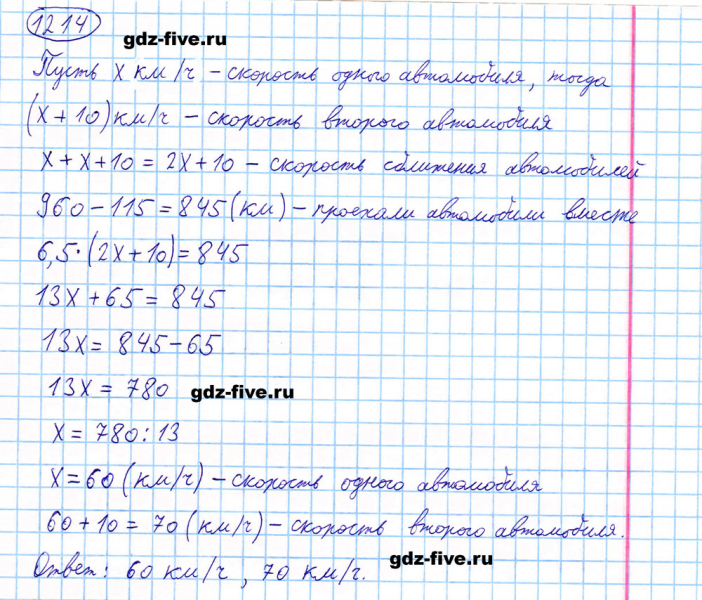 1214
gdz-five.ru
Пусть x км/ч – скорость одного автомобиля, тогда
(x + 10) км/ч – скорость второго автомобиля
x + x + 10 = 2x + 10 – скорость сближения автомобилей
960 – 115 = 845 (км) – проехали автомобили вместе
6,5 · (2x + 10) = 845
13x + 65 = 845
13x = 845 – 65
13x = 780 gdz-five.ru
x = 780 : 13
x = 60 (км/ч) – скорость одного автомобиля
60 + 10 = 70 (км/ч) – скорость второго автомобиля.
gdz-five.ru
Ответ: 60 км/ч, 70 км/ч.